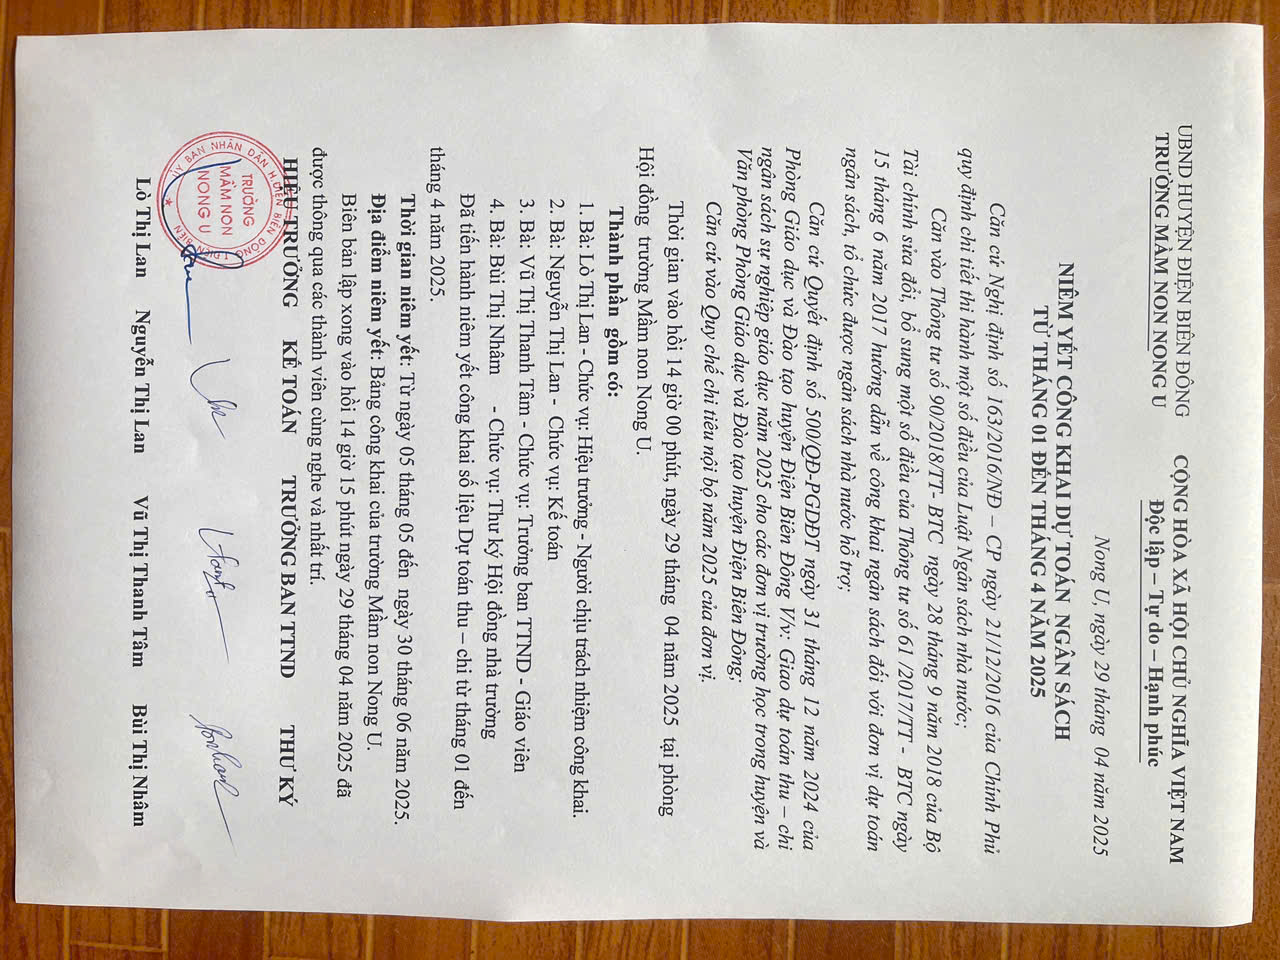 UBND HUYỆN ĐIỆN BIÊN ĐÔNG
TRƯỜNG MẦM NON NONG U
CỘNG HÒA XÃ HỘI CHỦ NGHĨA VIỆT NAM
Độc lập – Tự do – Hạnh phúc
Nong U, ngày 29 tháng 04 năm 2025
NIÊM YẾT CÔNG KHAI DỰ TOÁN NGÂN SÁCH
TỪ THÁNG 01 ĐẾN THÁNG 4 NĂM 2025
Căn cứ Nghị định số 163/2016/NĐ – CP ngày 21/12/2016 của Chính Phủ
quy định chi tiết thi hành một số điều của Luật Ngân sách nhà nước;
Căn vào Thông tư số 90/2018/TT- BTC ngày 28 tháng 9 năm 2018 của Bộ
Tài chính sửa đổi, bổ sung một số điều của Thông tư số 61 /2017/TT - BTC ngày
15 tháng 6 năm 2017 hướng dẫn về công khai ngân sách đối với đơn vị dự toán
ngân sách, tổ chức được ngân sách nhà nước hỗ trợ;
Căn cứ Quyết định số 500/QĐ-PGDĐT ngày 31 tháng 12 năm 2024 của
Phòng Giáo dục và Đào tạo huyện Điện Biên Đông V/v: Giao dự toán thu – chi
ngân sách sự nghiệp giáo dục năm 2025 cho các đơn vị trường học trong huyện và
Văn phòng Phòng Giáo dục và Đào tạo huyện Điện Biên Đông;
Căn cứ vào Quy chế chi tiêu nội bộ năm 2025 của đơn vị.
Thời gian vào hồi 14 giờ 00 phút, ngày 29 tháng 04 năm 2025 tại phòng
Hội đồng trường Mầm non Nong U.
Thanh phần gồm có:
1. Bà: Lò Thị Lan - Chức vụ: Hiệu trưởng - Người chịu trách nhiệm công khai.
2. Bà: Nguyễn Thị Lan - Chức vụ: Kế toán
3. Bà: Vũ Thị Thanh Tâm - Chức vụ: Trưởng ban TTND - Giáo viên
4. Bà: Bùi Thị Nhâm - Chức vụ: Thư ký Hội đồng nhà trường
Đã tiến hành niêm yết công khai số liệu Dự toán thu – chi từ tháng 01 đến
tháng 4 năm 2025.
Thời gian niêm yết: Từ ngày 05 tháng 05 đến ngày 30 tháng 06 năm 2025.
Địa điểm niêm yết: Bảng công khai của trường Mầm non Nong U.
Biên bản lập xong vào hồi 14 giờ 15 phút ngày 29 tháng 04 năm 2025 đã
được thông qua các thành viên cùng nghe và nhất trí.
HIỆU TRƯỞNG KẾ TOÁN TRƯỞNG BAN TTND THƯ KÝ
ỦY BAN NHÂN DÂN H. ĐIỆN BIÊN ĐÔNG T. ĐIỆN BIÊN
TRƯỜNG
MẦM NON
NONG U
Lò Thị Lan Nguyễn Thị Lan Vũ Thị Thanh Tâm Bùi Thị Nhâm